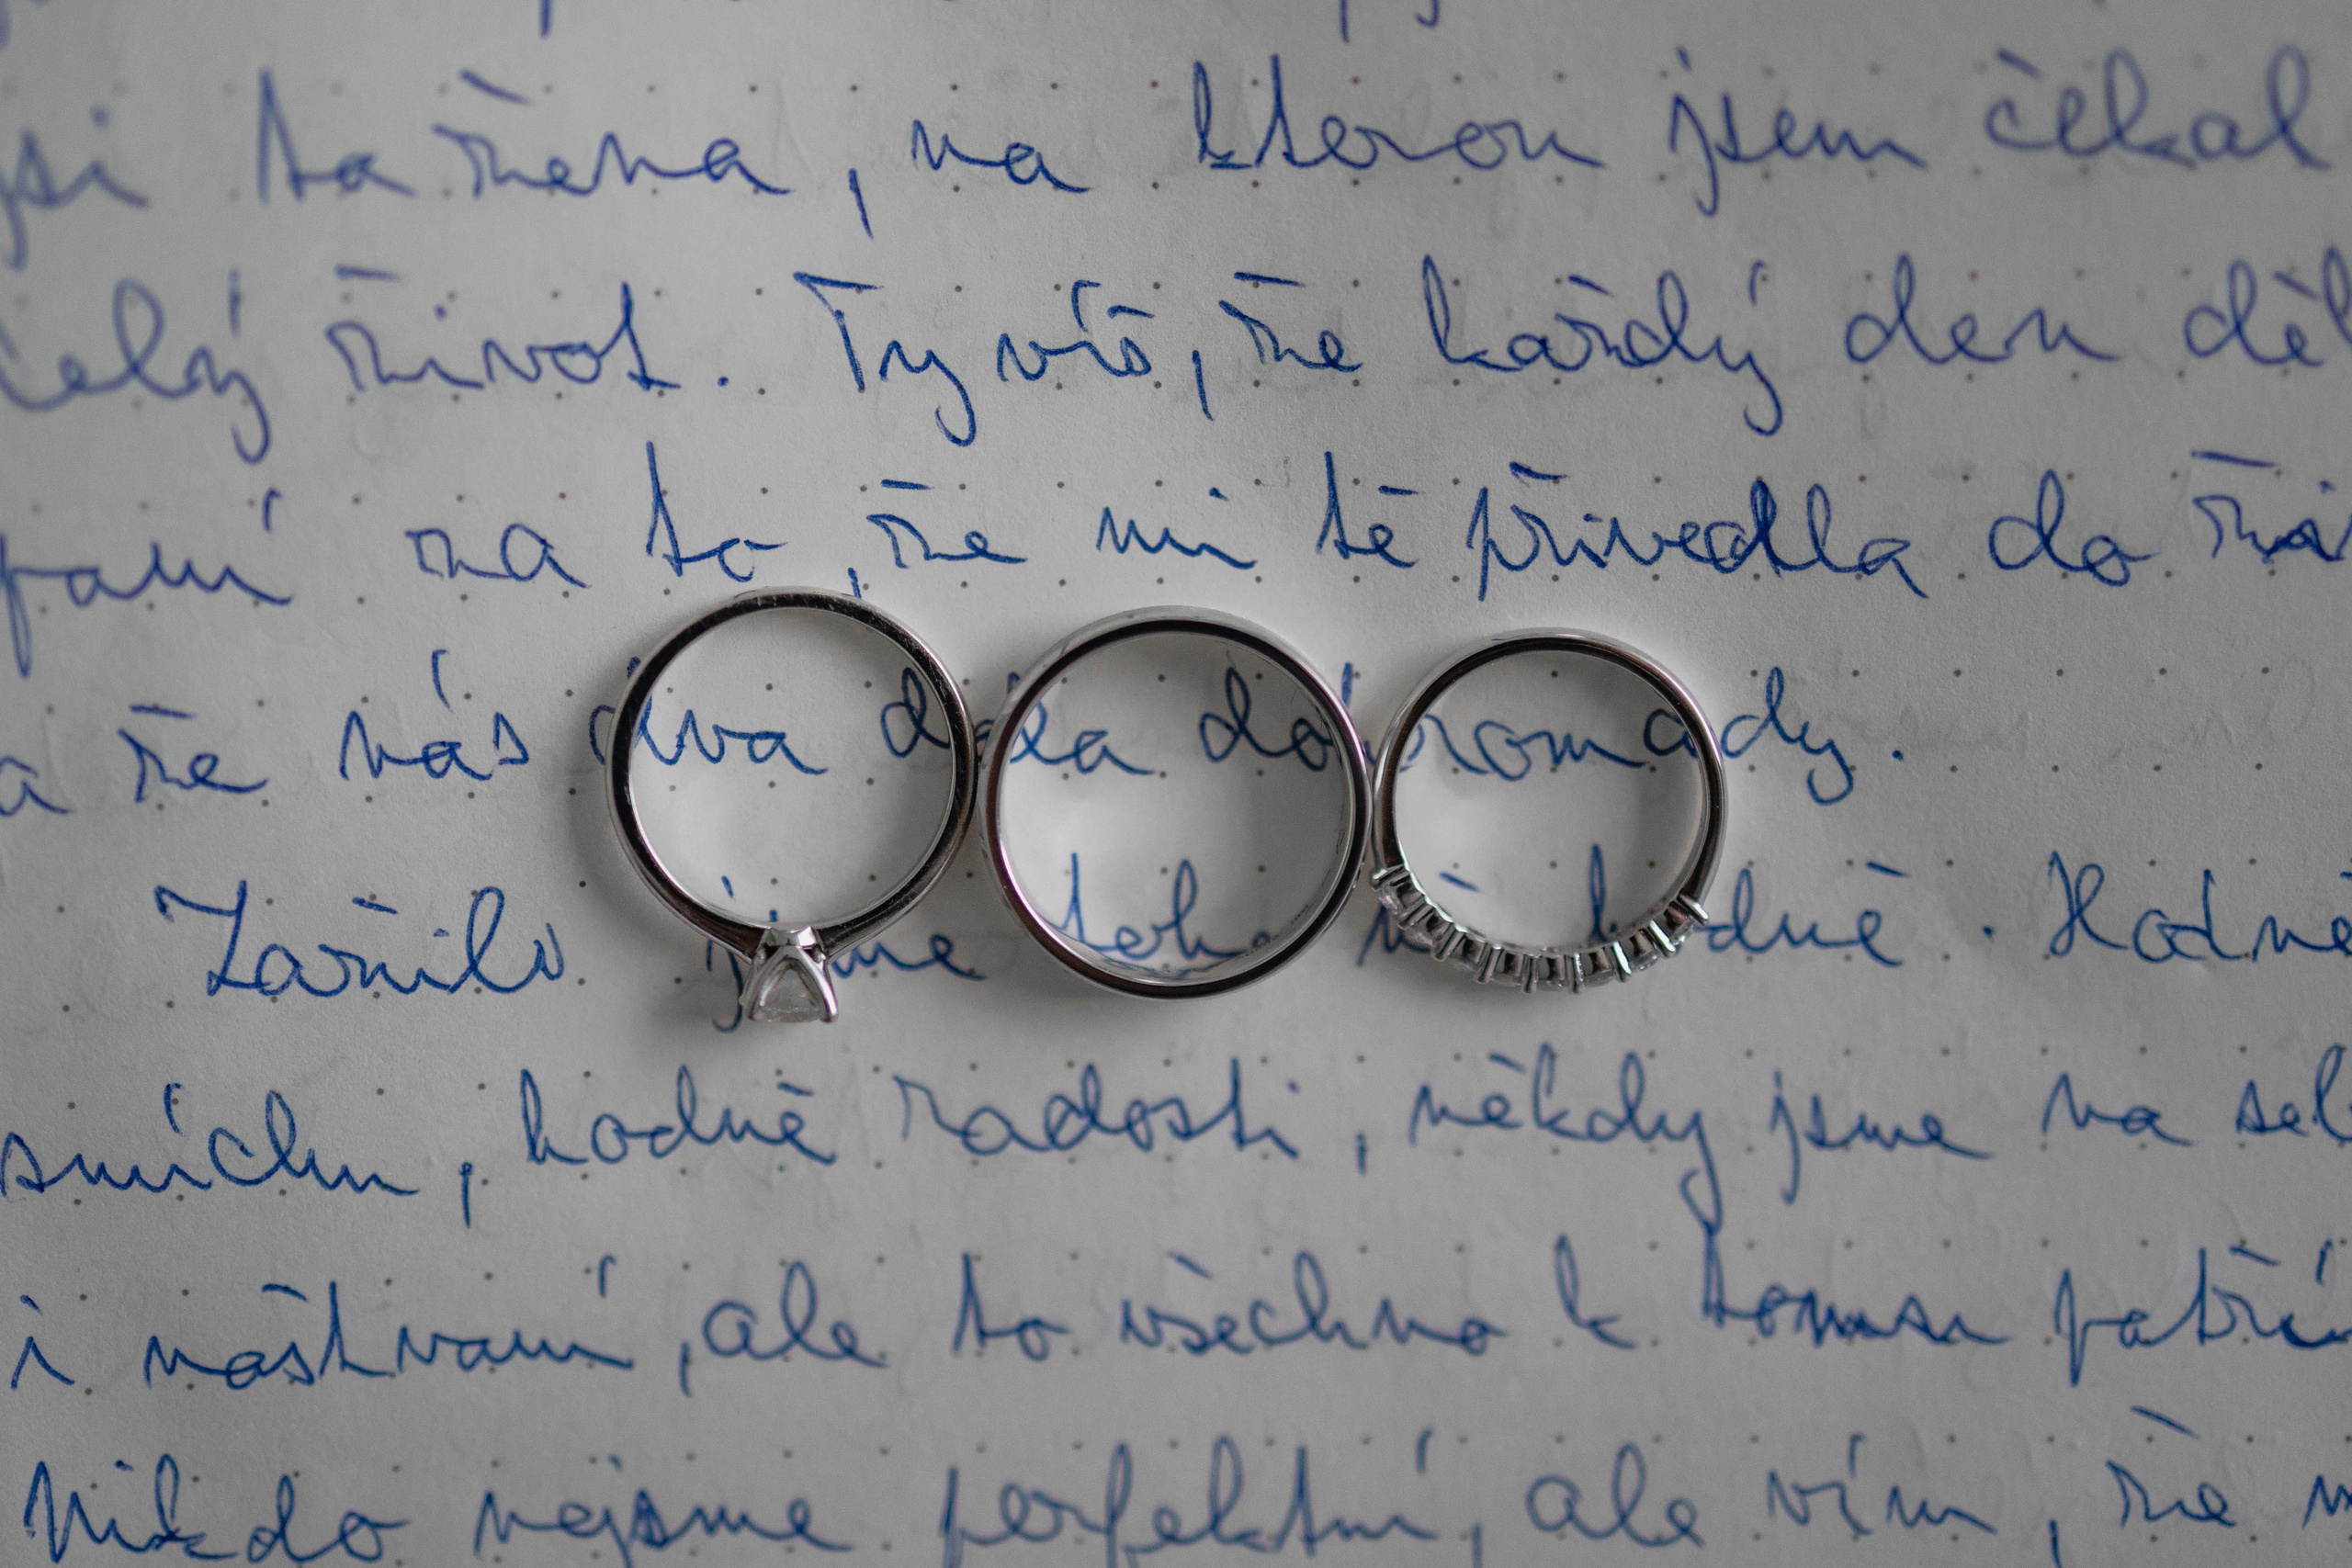 jsi ta žena, na kterou jsem čekal
celý život. Ty víš, že každý den děl
paní za to, že mi tě přivedla do živ
a že nás dva dala dohromady.
Zažili jsme toho už hodně. Hodně
smíchu, hodně radosti, někdy jsme na seb
i naštvaní, ale to všechno k tomu patří
Nikdo nejsme perfektní, ale vím, že